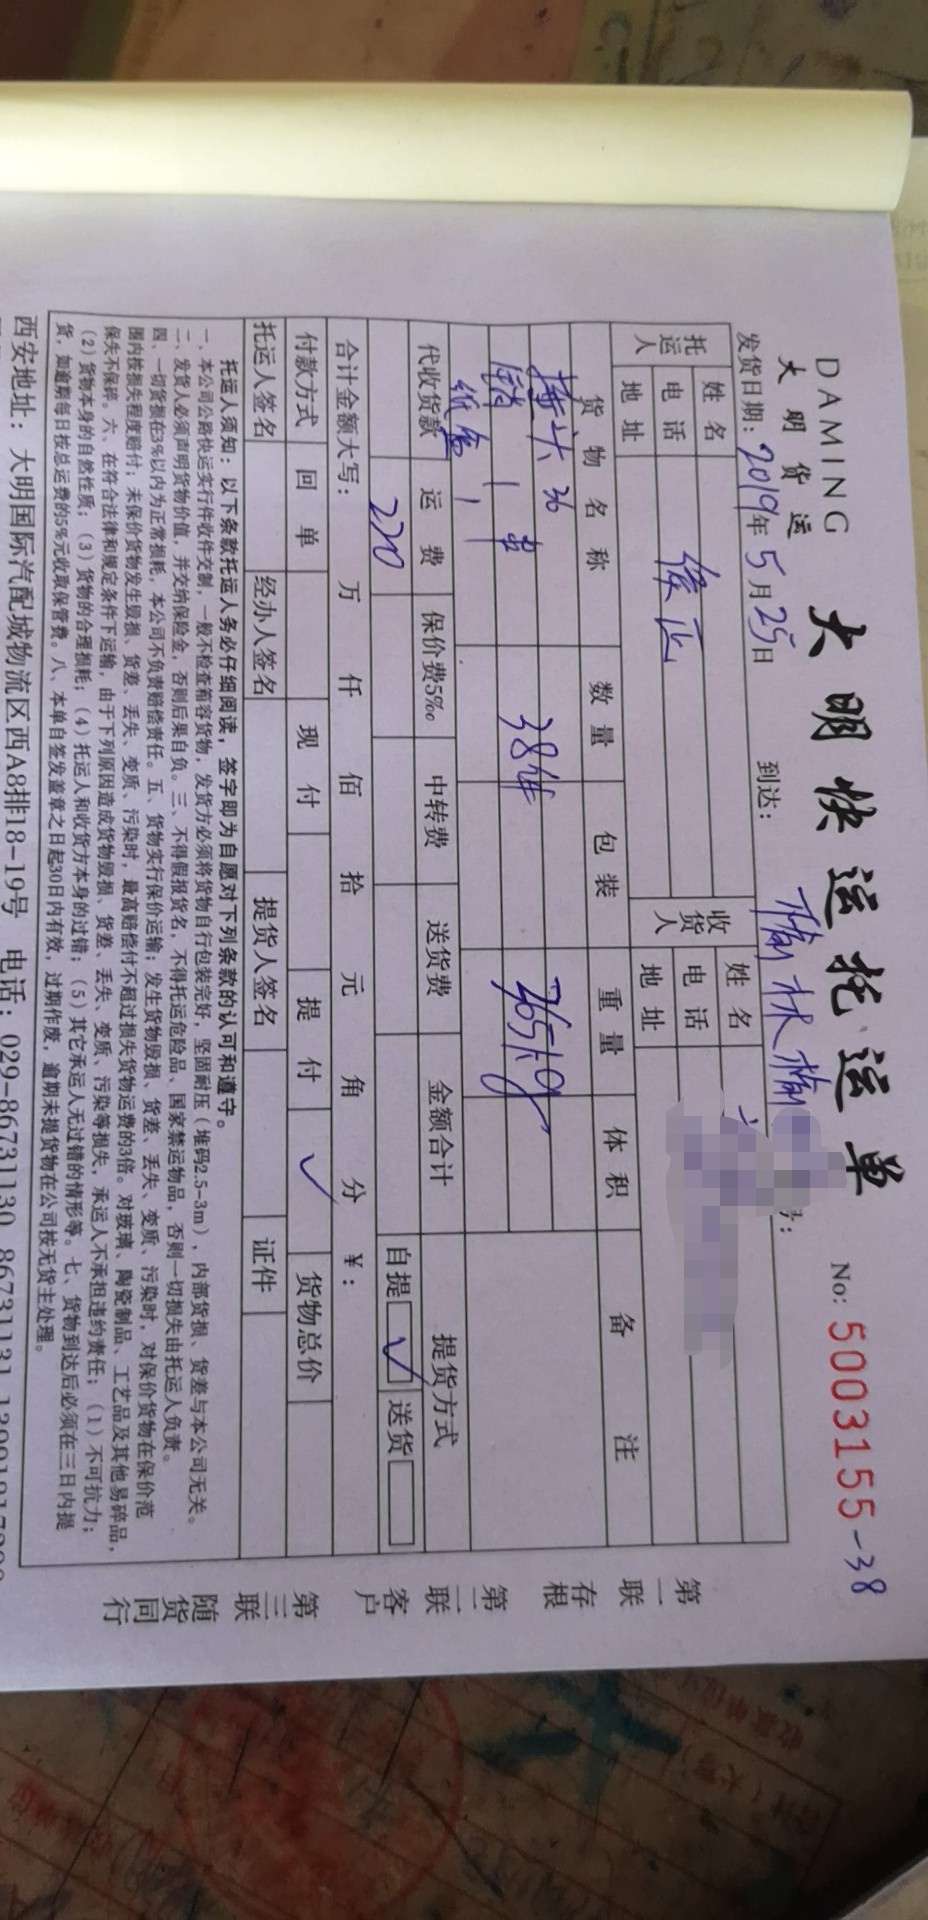 DAMING
大明货运
大明快运托运单
No: 5003155-38
发货日期: 2019年5月25日 到达: 榆林榆
托运人 姓名 收货人 姓名
电话 电话
地址 地址
货物名称 数量 包装 重量 体积 备注
36
38件 765kg
1
纸盒 1
代收货款 运费 保价费5‰ 中转费 送货费 金额合计 提货方式
220 自提 ✓ 送货
合计金额大写: 万 仟 佰 拾 元 角 分 ¥:
付款方式 回单 现付 提付 ✓ 货物总价
托运人签名 经办人签名 提货人签名 证件
托运人须知:以下条款托运人务必仔细阅读,签字即为自愿对下列条款的认可和遵守。
一、本公司公路快运实行件收件交制,一般不检查箱容货物,发货方必须将货物自行包装完好,坚固耐压(堆码2.5-3m),内部货损、货差与本公司无关。
二、发货人必须声明货物价值,并交纳保险金,否则后果自负。三、不得假报货名,不得托运危险品、国家禁运物品,否则一切损失由托运人负责。
四、一切货损在3%以内为正常损耗,本公司不负责赔偿责任。五、货物实行保价运输;发生货物毁损、货差、丢失、变质、污染时,对保价货物在保价范
围内按损失程度赔付;未保价货物发生毁损、货差、丢失、变质、污染时,最高赔偿付不超过损失货物运费的3倍。对玻璃、陶瓷制品、工艺品及其他易碎品,
保失不保碎。六、在符合法律和规定条件下运输,由于下列原因造成货物毁损、货差、丢失、变质、污染等损失,承运人不承担违约责任;(1)不可抗力;
(2)货物本身的自然性质;(3)货物的合理损耗;(4)托运人和收货方本身的过错;(5)其它承运人无过错的情形等。七、货物到达后必须在三日内提
货,如逾期每日按总运费的5%元收取保管费。八、本单自签发盖章之日起30日内有效,过期作废,逾期未提货物在公司按无货主处理。
西安地址:大明国际汽配城物流区西A8排18-19号 电话:029-86731130 86731131
第一联 存根
第二联 客户
第三联 随货同行